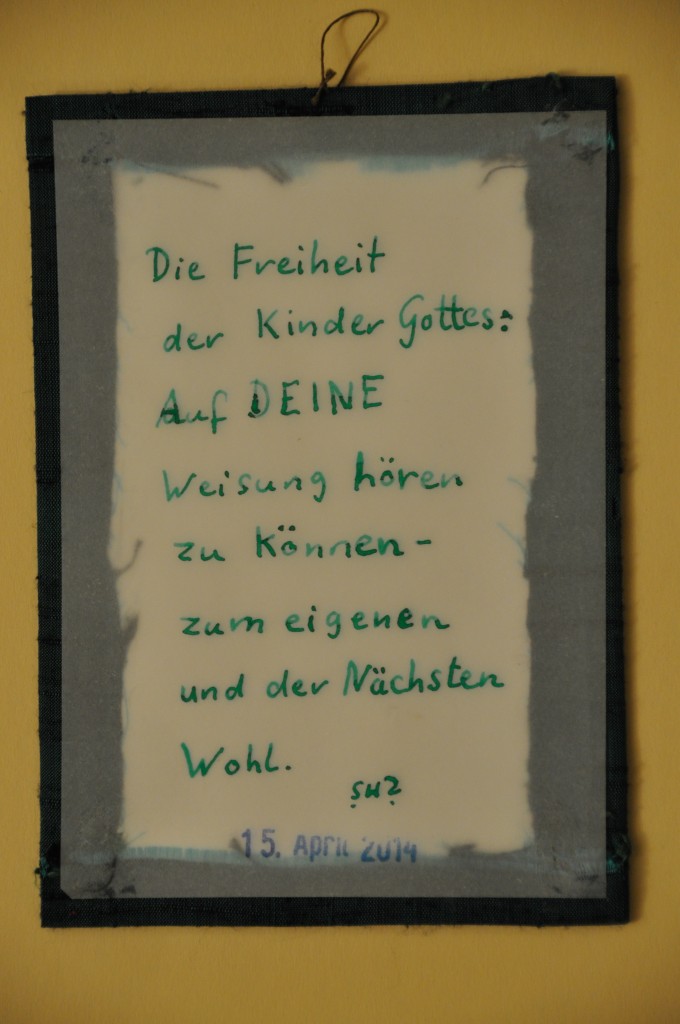 Die Freiheit
der Kinder Gottes:
Auf DEINE
Weisung hören
zu können-
zum eigenen
und der Nächsten
Wohl.
15. April 2014